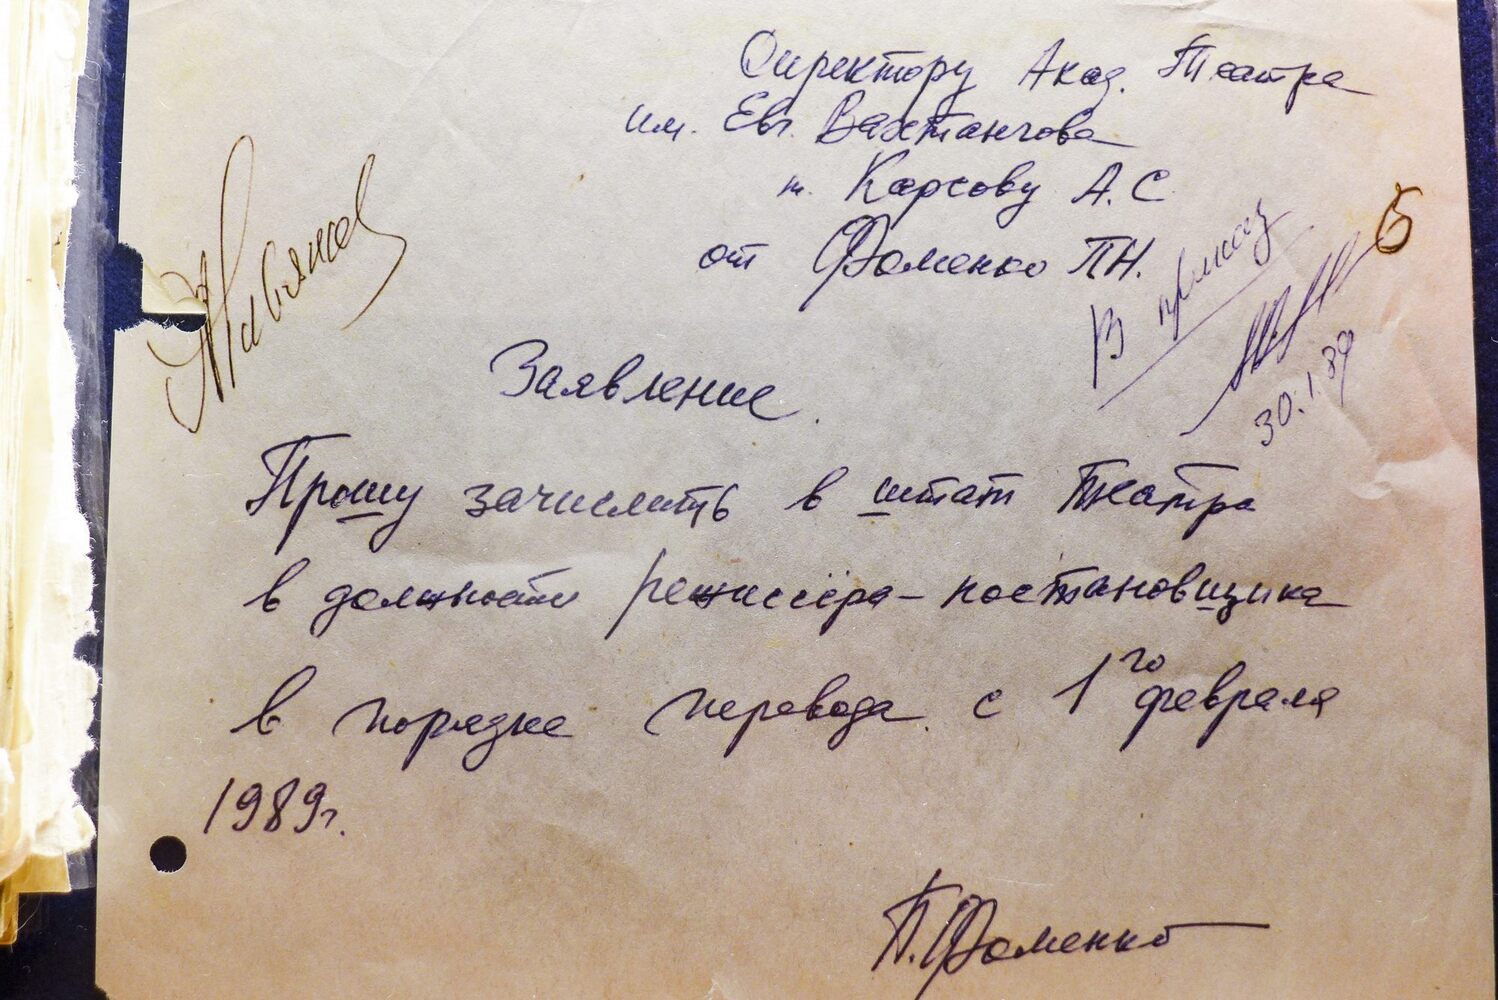 Директору Акад. Театра
им. Евг. Вахтангова
т. Карсову А.С
от Фоменко П.Н.
В приказ
30.1.89
Заявление.
Прошу зачислить в штат Театра
в должности режиссёра-постановщика
в порядке перевода с 1го февраля
1989г.
П. Фоменко